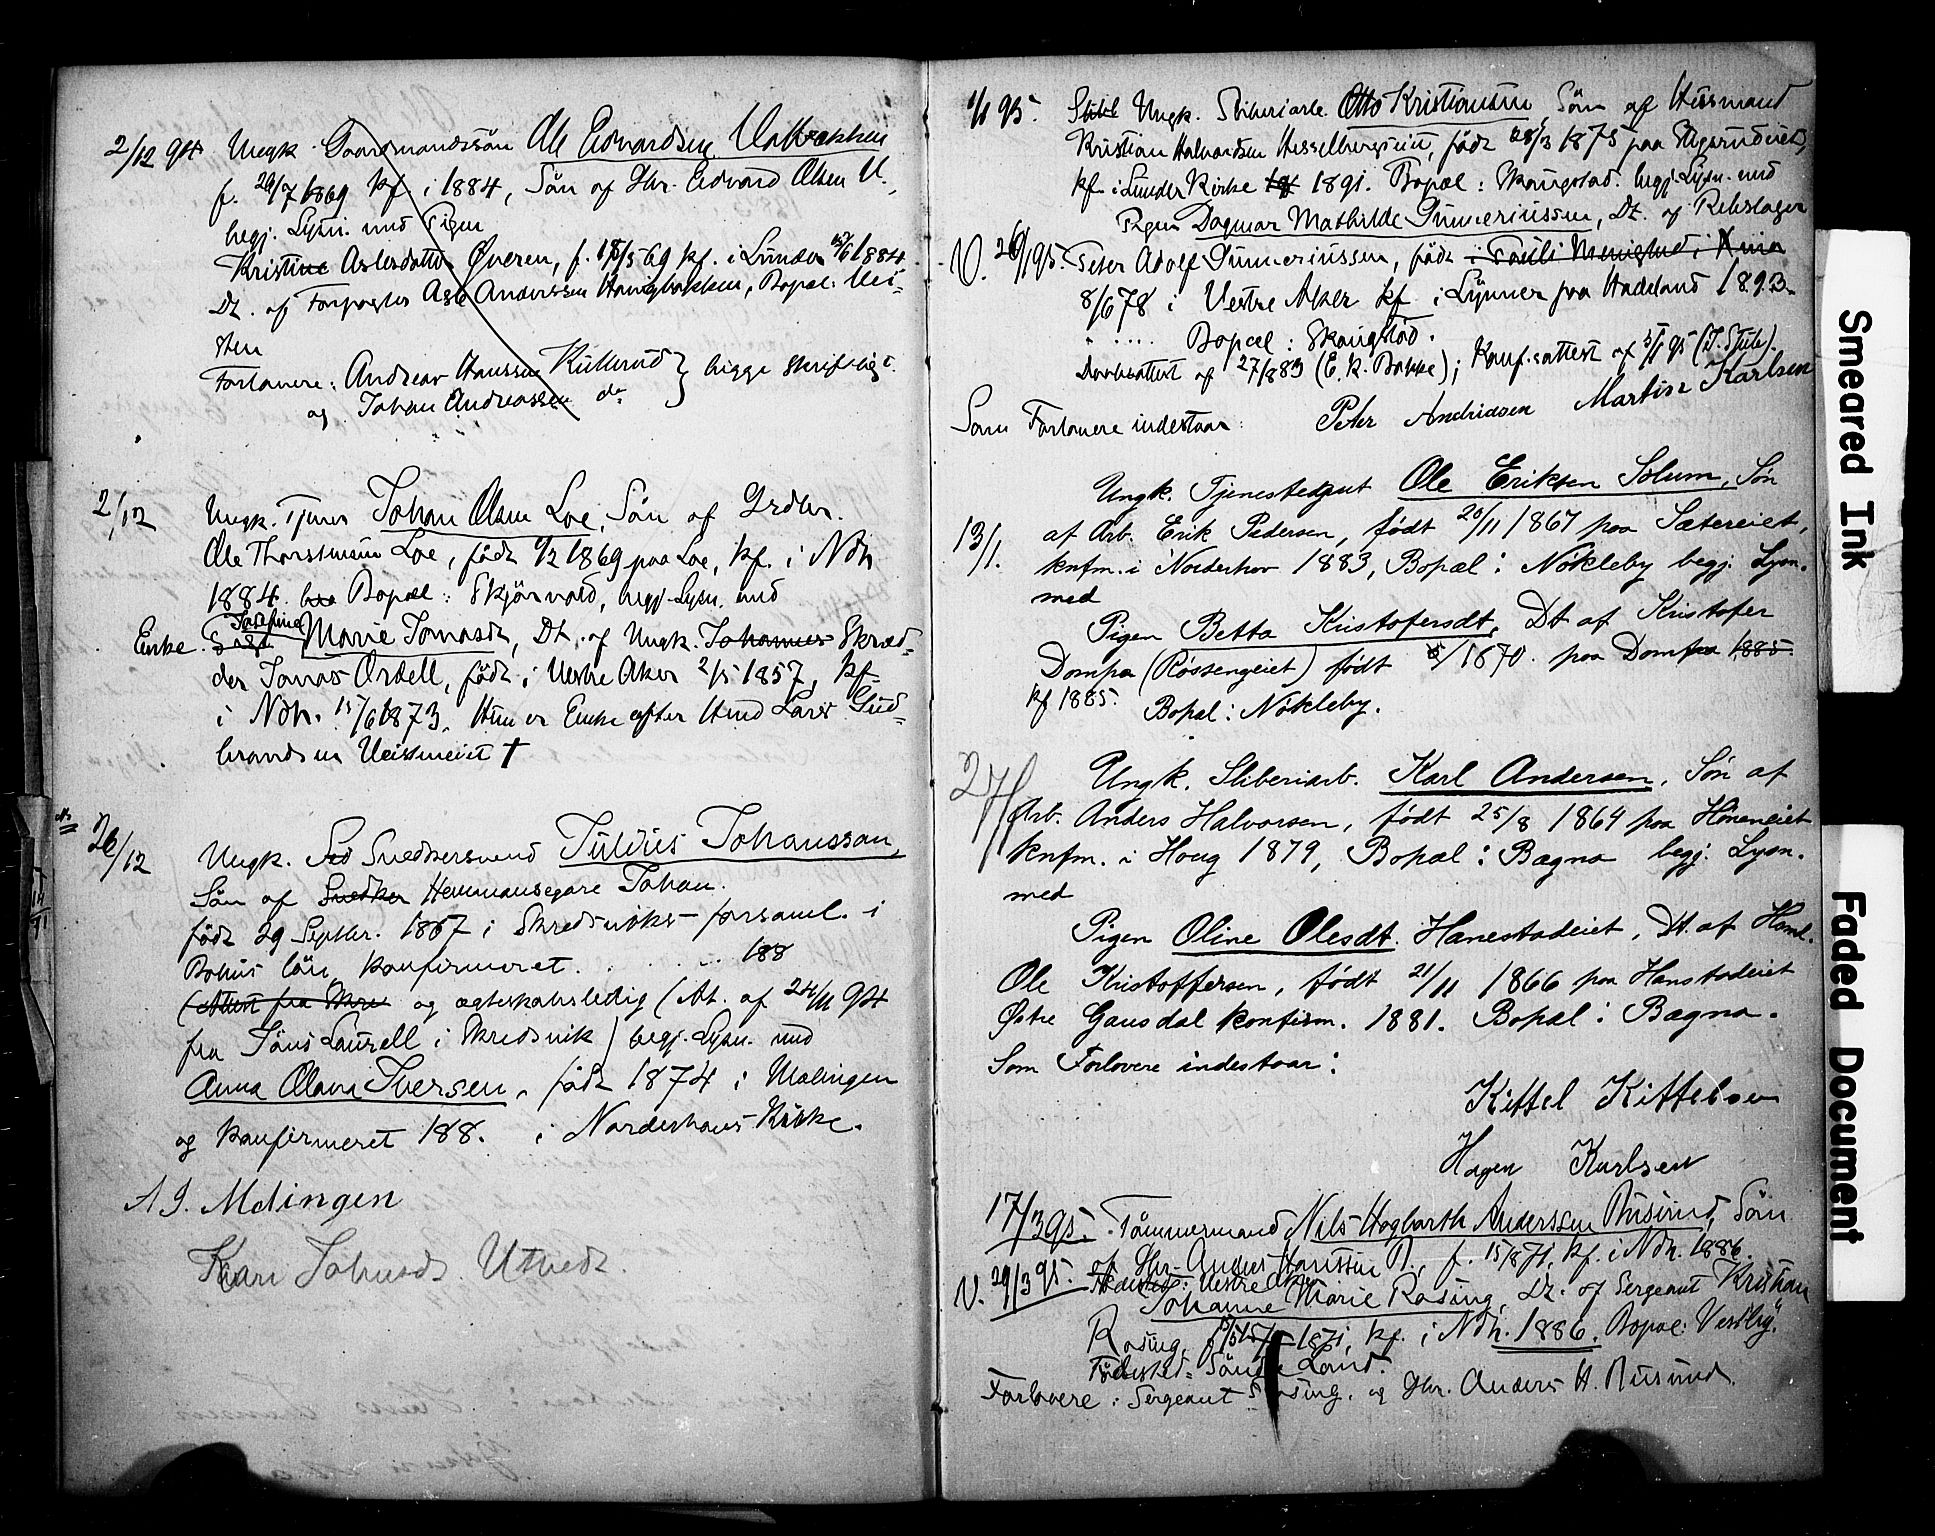 2/12 94 Ungk. Gaardmandssön Ole Edvardsen Valbakken
f. 29/7 1869 kf. i 1884, Sön af Gbr. Edvard Olsen V.,
begj. Lysn. med Pigen
Kristine Aslesdatter Øveren, f. 18/5 69 kf. i Lunder 1884
Dt. af Forpagter Asle Anderssen Haugbakken, Bopæl: Vei-
sten
Forlovere: Andreas Hanssen Killerud } begge skriftligt.
og Johan Andreassen do
2/12 Ungk. Tjener Johan Olsen Loe, Sön af Grdbr.
Ole Thorstensen Loe, födt 1/2 1869 paa Loe, kf. i Ndh
1884. Bopæl: Skjörvold, begj. Lysn. med
Enke Josefine Marie Tomasdt, Dt. af Ungk. Johannes Skræd-
der Tomas Ordell, födt i Vestre Aker 2/5 1857, kf.
i Ndh. 15/6 1873. Hun er Enke efter Hmd Lars Gud-
brandsen Veisteneiet †
26/12 Ungk. Snedkersvend Julius Johanssan,
Sön af Snedker Hemmansegare Johan.
födt 29 Septbr. 1867 i Skredsviks-forsaml. i
Bohus län, konfirmeret . . . . 188
(Attest fra Skre og ægteskabsledig (At. af 24/11 94
fra Jöns Laurell i Skredsvik) begj. Lysn. med
Anna Olava Iversen, födt 1874 i Malingen
og konfirmeret 188. i Norderhovs Kirke.
A I. Melingen
Kari Johnsdt. Utvedt.
1/1 95. Ungk. Sliberiarb. Otto Kristiansen, Sön af Husmand
Kristian Halvorsen Hesselbergeiet, födt 28/3 1875 paa Elgerudeiet,
kf. i Lunder Kirke 1891. Bopæl: Skaugstad. begj. Lysn. med
Pigen Dagmar Mathilde Gunneriussen, Dt. af Rebslager
V. 26/1 95. Peter Adolf Gunneriussen, födt i
8/6 78 i Vestre Aker kf. i Lunner paa Hadeland 1893.
" .... Bopæl: Skaugstad.
Daabsattest af 27/8 83 (E. K. Bakke); Konf.sattest af 5/1 95 (J. Stub).
Som Forlovere indestaar: Peter Andriasen Martin Karlsen
13/1. Ungk. Tjenestedgut Ole Eriksen Solum, Søn
af Arb. Erik Pedersen, født 20/11 1867 paa Sætereiet,
knfm. i Norderhov 1883, Bopæl: Nökleby begj. Lysn.
med
Pigen Betta Kristofersdt, Dt. af Kristofer
Dompa (Røssengeiet) født 5/ 1870. paa Dompa 1885.
kf 1885. Bopæl: Nökleby.
27/1 Ungk. Sliberiarb. Karl Andersen, Søn af
Arb. Anders Halvorsen, født 25/8 1864 paa Höneneiet
knfm. i Houg 1879, Bopæl: Bægna begj. Lysn.
med
Pigen Oline Olesdt. Hanestadeiet, Dt. af Hsmd.
Ole Kristoffersen, født 21/11 1866 paa Hanstadeiet
Østre Gausdal konfirm. 1881. Bopæl: Bægna.
Som Forlovere indestaar:
Kittel Kittelsen
Hagen Karlsen
17/3 95. Tömmermand Nils Hagbarth Anderssen Rusund, Sön
af Gbr. Anders Hanssen R., f. 15/8 71, kf. i Ndh. 1886.
V. 29/3 95. Födested: Vestre Aker
Johanne Marie Rosing, Dt. af Sergeant Kristian
Rosing, 1871, kf. i Ndh. 1886. Bopæl: Vestby.
Födested: Söndre Land.
Forlovere: Sergeant Rosing, og Gbr. Anders H. Rusund.
Smeared Ink
Faded Document